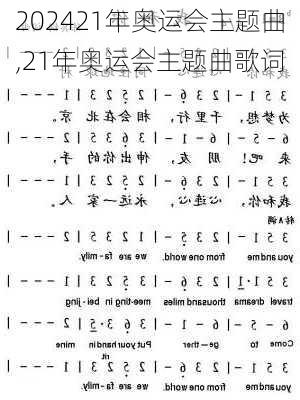 202421年奥运会主题曲
,21年奥运会主题曲歌词
3 5 1 - | 2 3 6 - | 3 2 5 2 | 1 - - -
为梦想， 千里行， 相会在北 京。
6 - 5 - | 6 - 1 - | 3 6 3 5 | 2 - - -
来 吧！ 朋 友， 伸出你的 手，
3 5 1 - | 2 3 6 - | 3 2 5 2 | 1 - - -
我和你， 心连心， 永远一家 人。
3 5 1 -
you and me from one world. we are fa-mily.
travel dreams thousand miles meeting in bei-jing
6 - 5 - | 6 - 1 -
Come to ge-ther Put your hand in mine
rit
you and me from one world we are fa-mily.